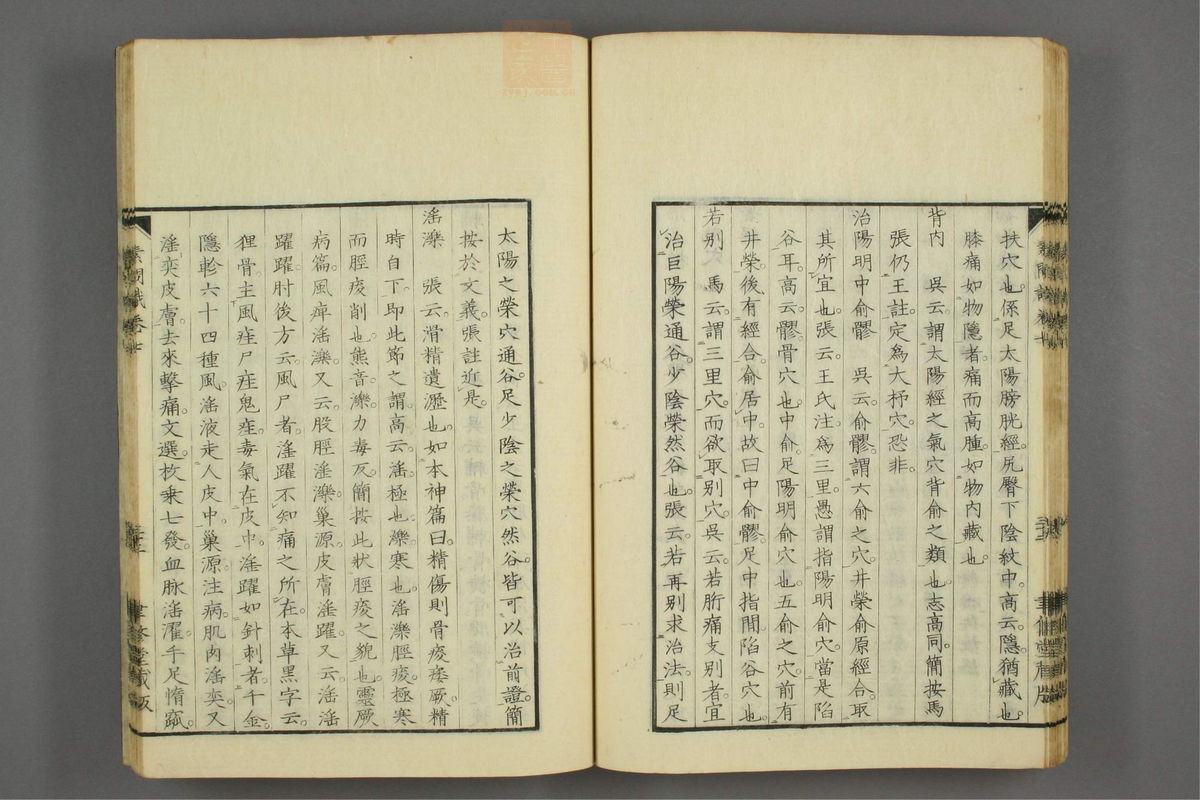 扶穴也。係足太陽膀胱經。尻臀下陰紋中。高云。隱。猶藏也。
膝痛如物隱者。痛而高腫。如物內藏也。
背內　吳云。謂太陽經之氣穴背俞之類也。志高同。簡按馬
張仍王註。定爲大杼穴。恐非。
治陽明中俞髎　吳云。俞髎。謂六俞之穴。井榮俞原經合。取
其所宜也。張云。王氏注爲三里。愚謂指陽明俞穴。當是陷
谷耳。高云。髎。骨穴也。中俞。足陽明俞穴也。五俞之穴。前有
井榮。後有經合。俞居中。故曰中俞髎。足中指間。陷谷穴也。
若別　馬云。謂三里穴。而欲取別穴。吳云。若胻痛支別者。宜
治巨陽榮通谷。少陰榮然谷也。張云。若再別求治法。則足
太陽之榮穴通谷。足少陰之榮穴然谷。皆可以治前證。簡
按於文義。張註近是。
淫濼　張云。滑精遺瀝也。如本神篇曰。精傷則骨痠痿厥。精
時自下。卽此節之謂。高云。淫。極也。濼。寒也。淫濼脛痠。極寒
而脛痠削也。熊音。濼。力毒反。簡按此狀脛痠之貌也。靈厥
病篇。風痺淫濼。又云股脛淫濼。巢源皮膚淫躍。又云淫淫
躍躍。肘後方云。風尸者。淫躍不知痛之所在。本草黑字云。
狸骨。主風疰尸疰鬼疰。毒氣在皮中。淫躍如針刺者。千金。
隱軫六十四種風。淫液走人皮中。巢源。注病。肌肉淫奕。又
淫奕皮膚。去來擊痛。文選。枚乘七發。血脉淫濯。手足惰窳。
素問識卷七
聿修堂藏版